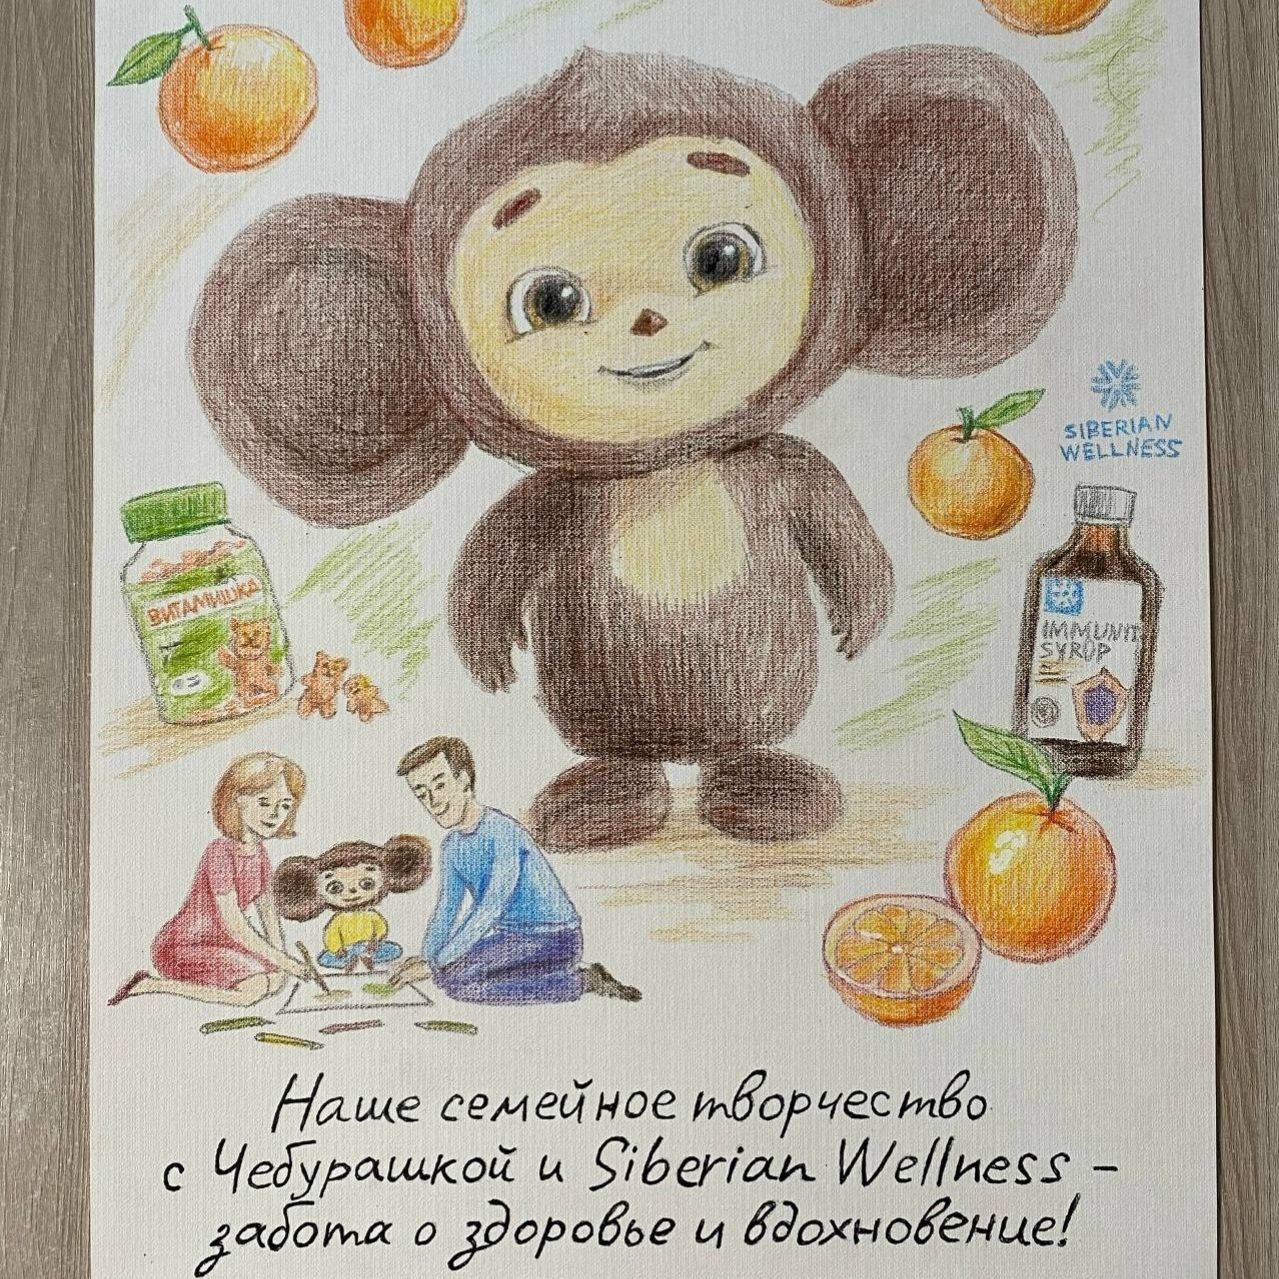 SIBERIAN
WELLNESS
ВИТАМИШКА
IMMUNIT
SYRUP
Наше семейное творчество
с Чебурашкой и Siberian Wellness –
забота о здоровье и вдохновение!